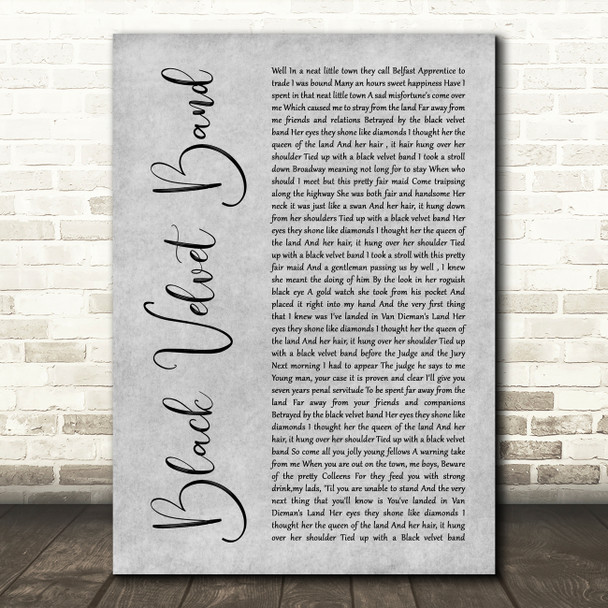 Black Velvet Band
Well In a neat little town they call Belfast Apprentice to
trade I was bound Many an hours sweet happiness Have I
spent in that neat little town A sad misfortune's come over
me Which caused me to stray from the land Far away from
me friends and relations Betrayed by the black velvet
band Her eyes they shone like diamonds I thought her the
queen of the land And her hair , it hair hung over her
shoulder Tied up with a black velvet band I took a stroll
down Broadway meaning not long for to stay When who
should I meet but this pretty fair maid Come traipsing
along the highway She was both fair and handsome Her
neck it was just like a swan And her hair, it hung down
from her shoulders Tied up with a black velvet band Her
eyes they shone like diamonds I thought her the queen of
the land And her hair, it hung over her shoulder Tied up
with a black velvet band I took a stroll with this pretty
fair maid And a gentleman passing us by well , I knew
she meant the doing of him By the look in her roguish
black eye A gold watch she took from his pocket And
placed it right into my hand And the very first thing that
I knew was I've landed in Van Dieman's Land Her
eyes they shone like diamonds I thought her the queen of the
land And her hair, it hung over her shoulder Tied up
with a black velvet band before the Judge and the Jury
Next morning I had to appear The judge he says to me
Young man, your case it is proven and clear I'll give you
seven years penal servitude To be spent far away from the
land Far away from your friends and companions
Betrayed by the black velvet band Her eyes they shone like
diamonds I thought her the queen of the land And her
hair, it hung over her shoulder Tied up with a black velvet
band So come all you jolly young fellows A warning take
from me When you are out on the town, me boys, Beware
of the pretty Colleens For they feed you with strong
drink,my lads, 'Til you are unable to stand And the very
next thing that you'll know is You've landed in Van
Dieman's Land Her eyes they shone like diamonds I
thought her the queen of the land And her hair, it hung
over her shoulder Tied up with a Black velvet band